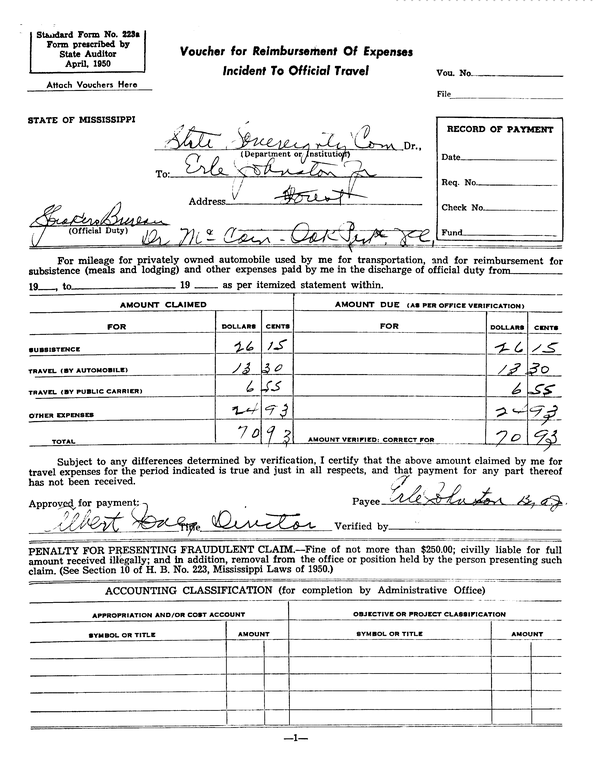 Standard Form No. 223a
Form prescribed by
State Auditor
April, 1950
Attach Vouchers Here
Voucher for Reimbursement Of Expenses
Incident To Official Travel
Vou. No.
File
STATE OF MISSISSIPPI
State Sovereignty Com Dr.,
(Department or Institution)
To: Erle Johnston Jr
Address Forest
Speakers Bureau
(Official Duty)
Dr Mc Cain - Oak Park, Ill,
RECORD OF PAYMENT
Date
Req. No.
Check No.
Fund
For mileage for privately owned automobile used by me for transportation, and for reimbursement for
subsistence (meals and lodging) and other expenses paid by me in the discharge of official duty from
19___, to 19 ___ as per itemized statement within.
AMOUNT CLAIMED AMOUNT DUE (AS PER OFFICE VERIFICATION)
FOR DOLLARS CENTS FOR DOLLARS CENTS
SUBSISTENCE 26 15 26 15
TRAVEL (BY AUTOMOBILE) 13 30 13 30
TRAVEL (BY PUBLIC CARRIER) 6 55 6 55
OTHER EXPENSES 24 93 24 93
TOTAL 70 93 AMOUNT VERIFIED: CORRECT FOR 70 93
Subject to any differences determined by verification, I certify that the above amount claimed by me for
travel expenses for the period indicated is true and just in all respects, and that payment for any part thereof
has not been received.
Approved for payment: Payee Erle Johnston
Albert Title Director Verified by
PENALTY FOR PRESENTING FRAUDULENT CLAIM.—Fine of not more than $250.00; civilly liable for full
amount received illegally; and in addition, removal from the office or position held by the person presenting such
claim. (See Section 10 of H. B. No. 223, Mississippi Laws of 1950.)
ACCOUNTING CLASSIFICATION (for completion by Administrative Office)
APPROPRIATION AND/OR COST ACCOUNT OBJECTIVE OR PROJECT CLASSIFICATION
SYMBOL OR TITLE AMOUNT SYMBOL OR TITLE AMOUNT
—1—